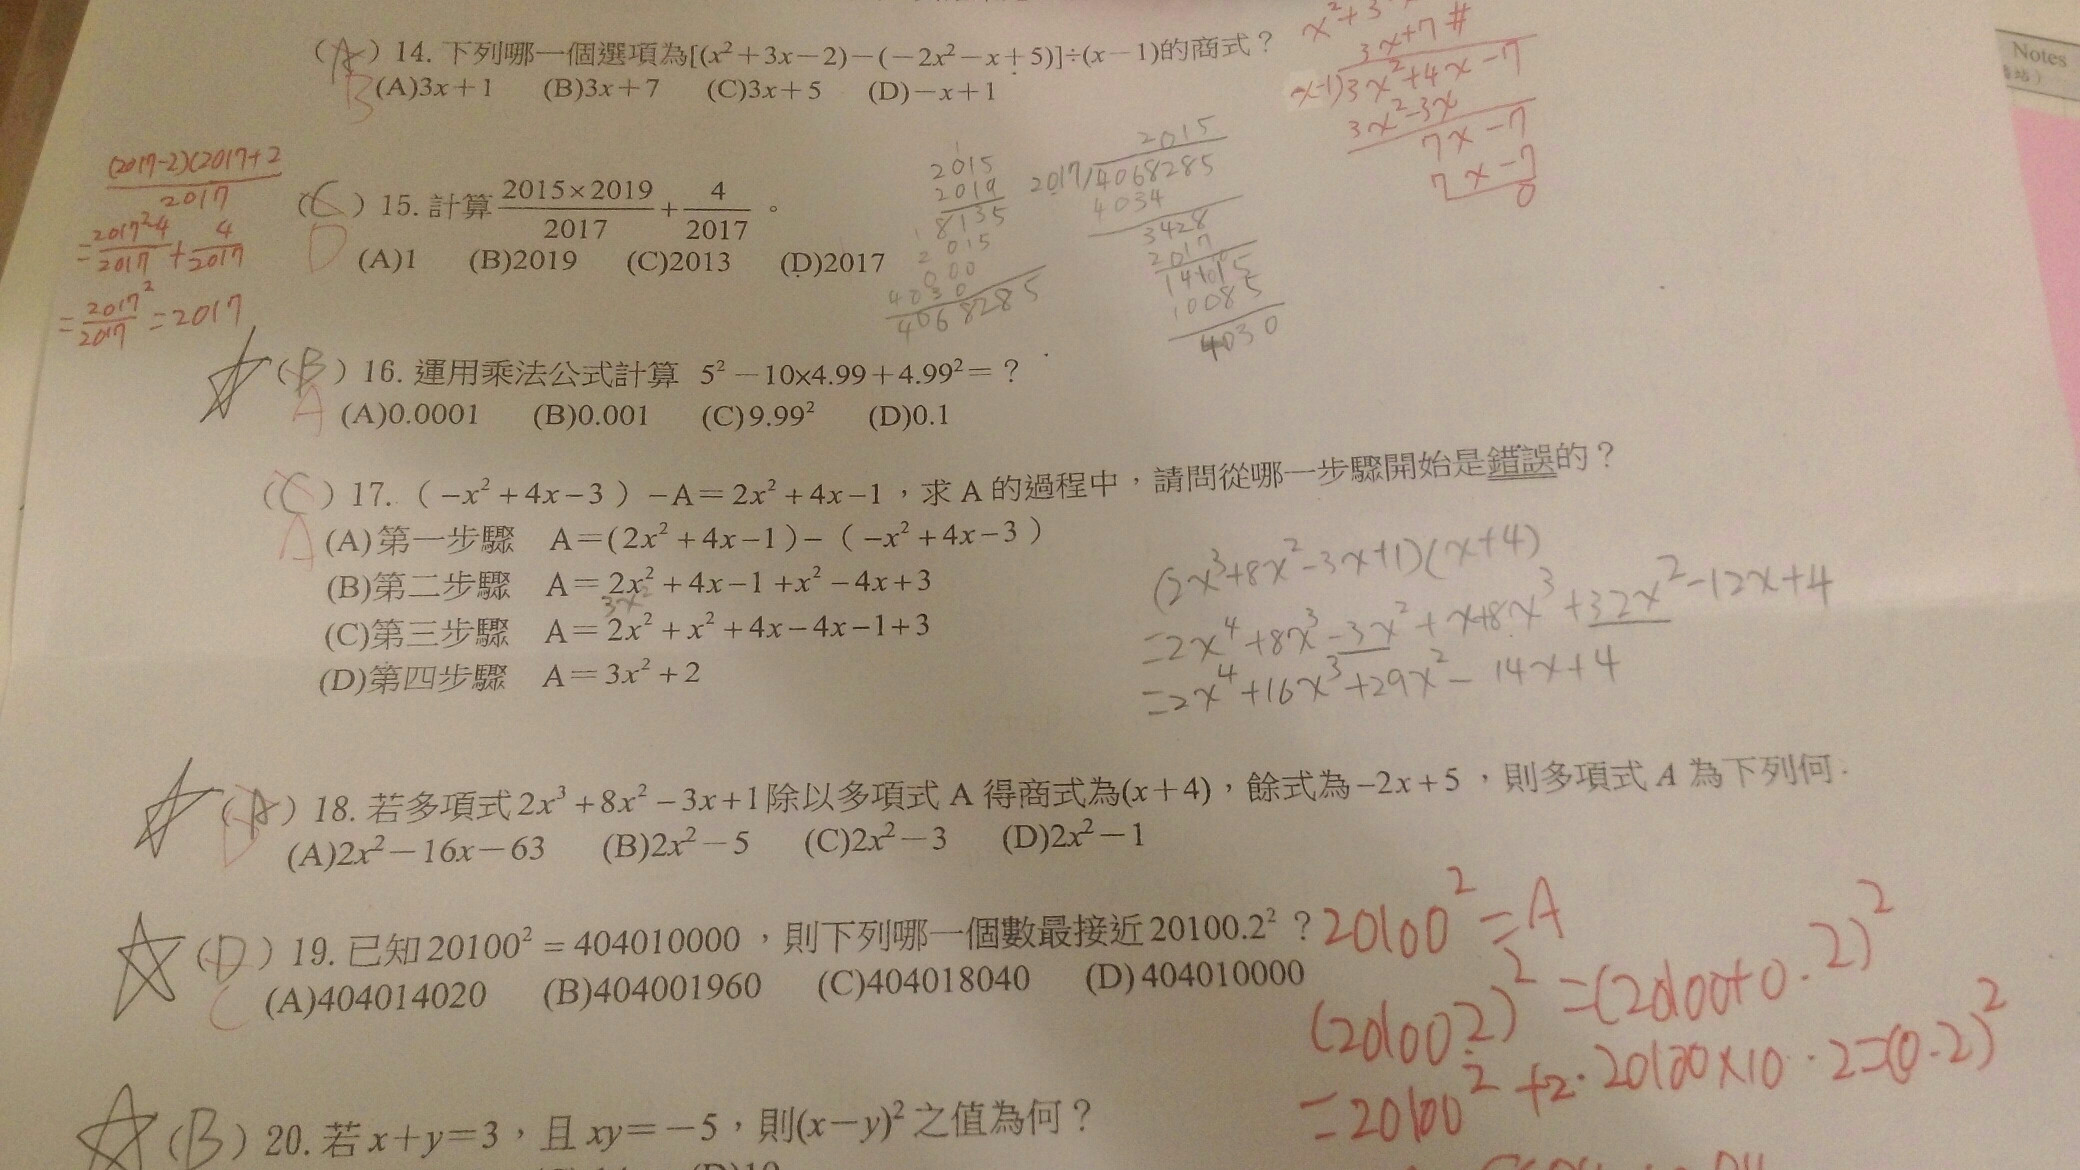 (A) 14. 下列哪一個選項為[(x²+3x−2)−(−2x²−x+5)]÷(x−1)的商式？
B
(A)3x+1 (B)3x+7 (C)3x+5 (D)−x+1
x²+3
3x+7 #
x-1)3x²+4x-7
3x²-3x
7x-7
7x-7
0
Notes
(2017-2)(2017+2
2017
=2017²-4/2017 + 4/2017
=2017²/2017=2017
(C) 15. 計算 2015×2019/2017 + 4/2017 。
D
(A)1 (B)2019 (C)2013 (D)2017
2015
2019
8135
2015
000
4030
4068285
2015
2017)4068285
4034
3428
2017
14115
10085
4030
(B) 16. 運用乘法公式計算 5²−10×4.99+4.99²=？
A
(A)0.0001 (B)0.001 (C)9.99² (D)0.1
(C) 17. (−x²+4x−3)−A=2x²+4x−1，求 A 的過程中，請問從哪一步驟開始是錯誤的？
A
(A)第一步驟 A=(2x²+4x−1)−(−x²+4x−3)
(B)第二步驟 A=2x²+4x−1+x²−4x+3
3x²
(C)第三步驟 A=2x²+x²+4x−4x−1+3
(D)第四步驟 A=3x²+2
(2x³+8x²-3x+1)(x+4)
=2x⁴+8x³-3x²+x+8x³+32x²-12x+4
=2x⁴+16x³+29x²-14x+4
(A) 18. 若多項式 2x³+8x²−3x+1除以多項式 A 得商式為(x+4)，餘式為−2x+5，則多項式 A 為下列何
D
(A)2x²−16x−63 (B)2x²−5 (C)2x²−3 (D)2x²−1
(D) 19. 已知 20100²=404010000，則下列哪一個數最接近 20100.2²？
C
(A)404014020 (B)404001960 (C)404018040 (D)404010000
20100²=A
(20100.2)²=(20100+0.2)²
=20100²+2·20100×10.2=(0.2)²
(B) 20. 若 x+y=3，且 xy=−5，則(x−y)² 之值為何？